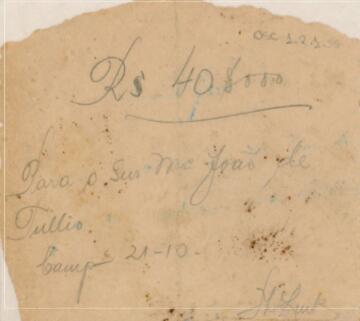 Rs 40$000
Para o Snr Mc João de
Tullio
Camps 21-10